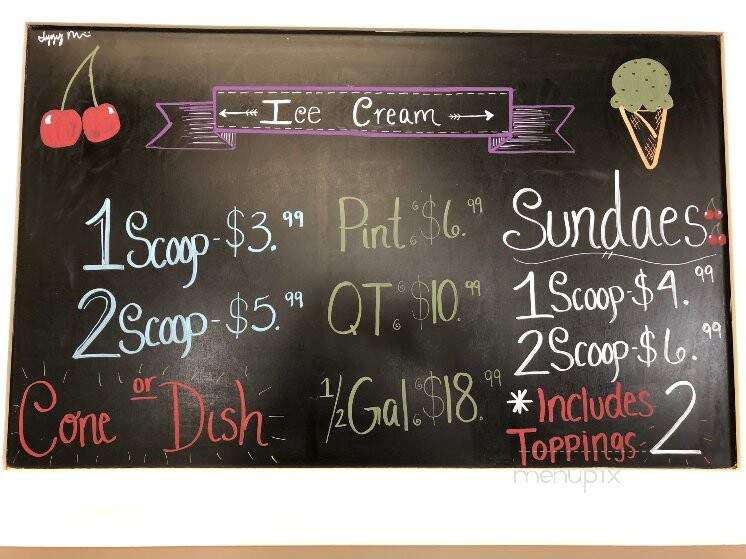 Ice Cream
1 Scoop-$3.99
2 Scoop-$5.99
Cone or Dish
Pint $6.99
QT. $10.99
1/2 Gal. $18.99
Sundaes
1 Scoop-$4.99
2 Scoop-$6.99
*Includes 2
Toppings
menupix